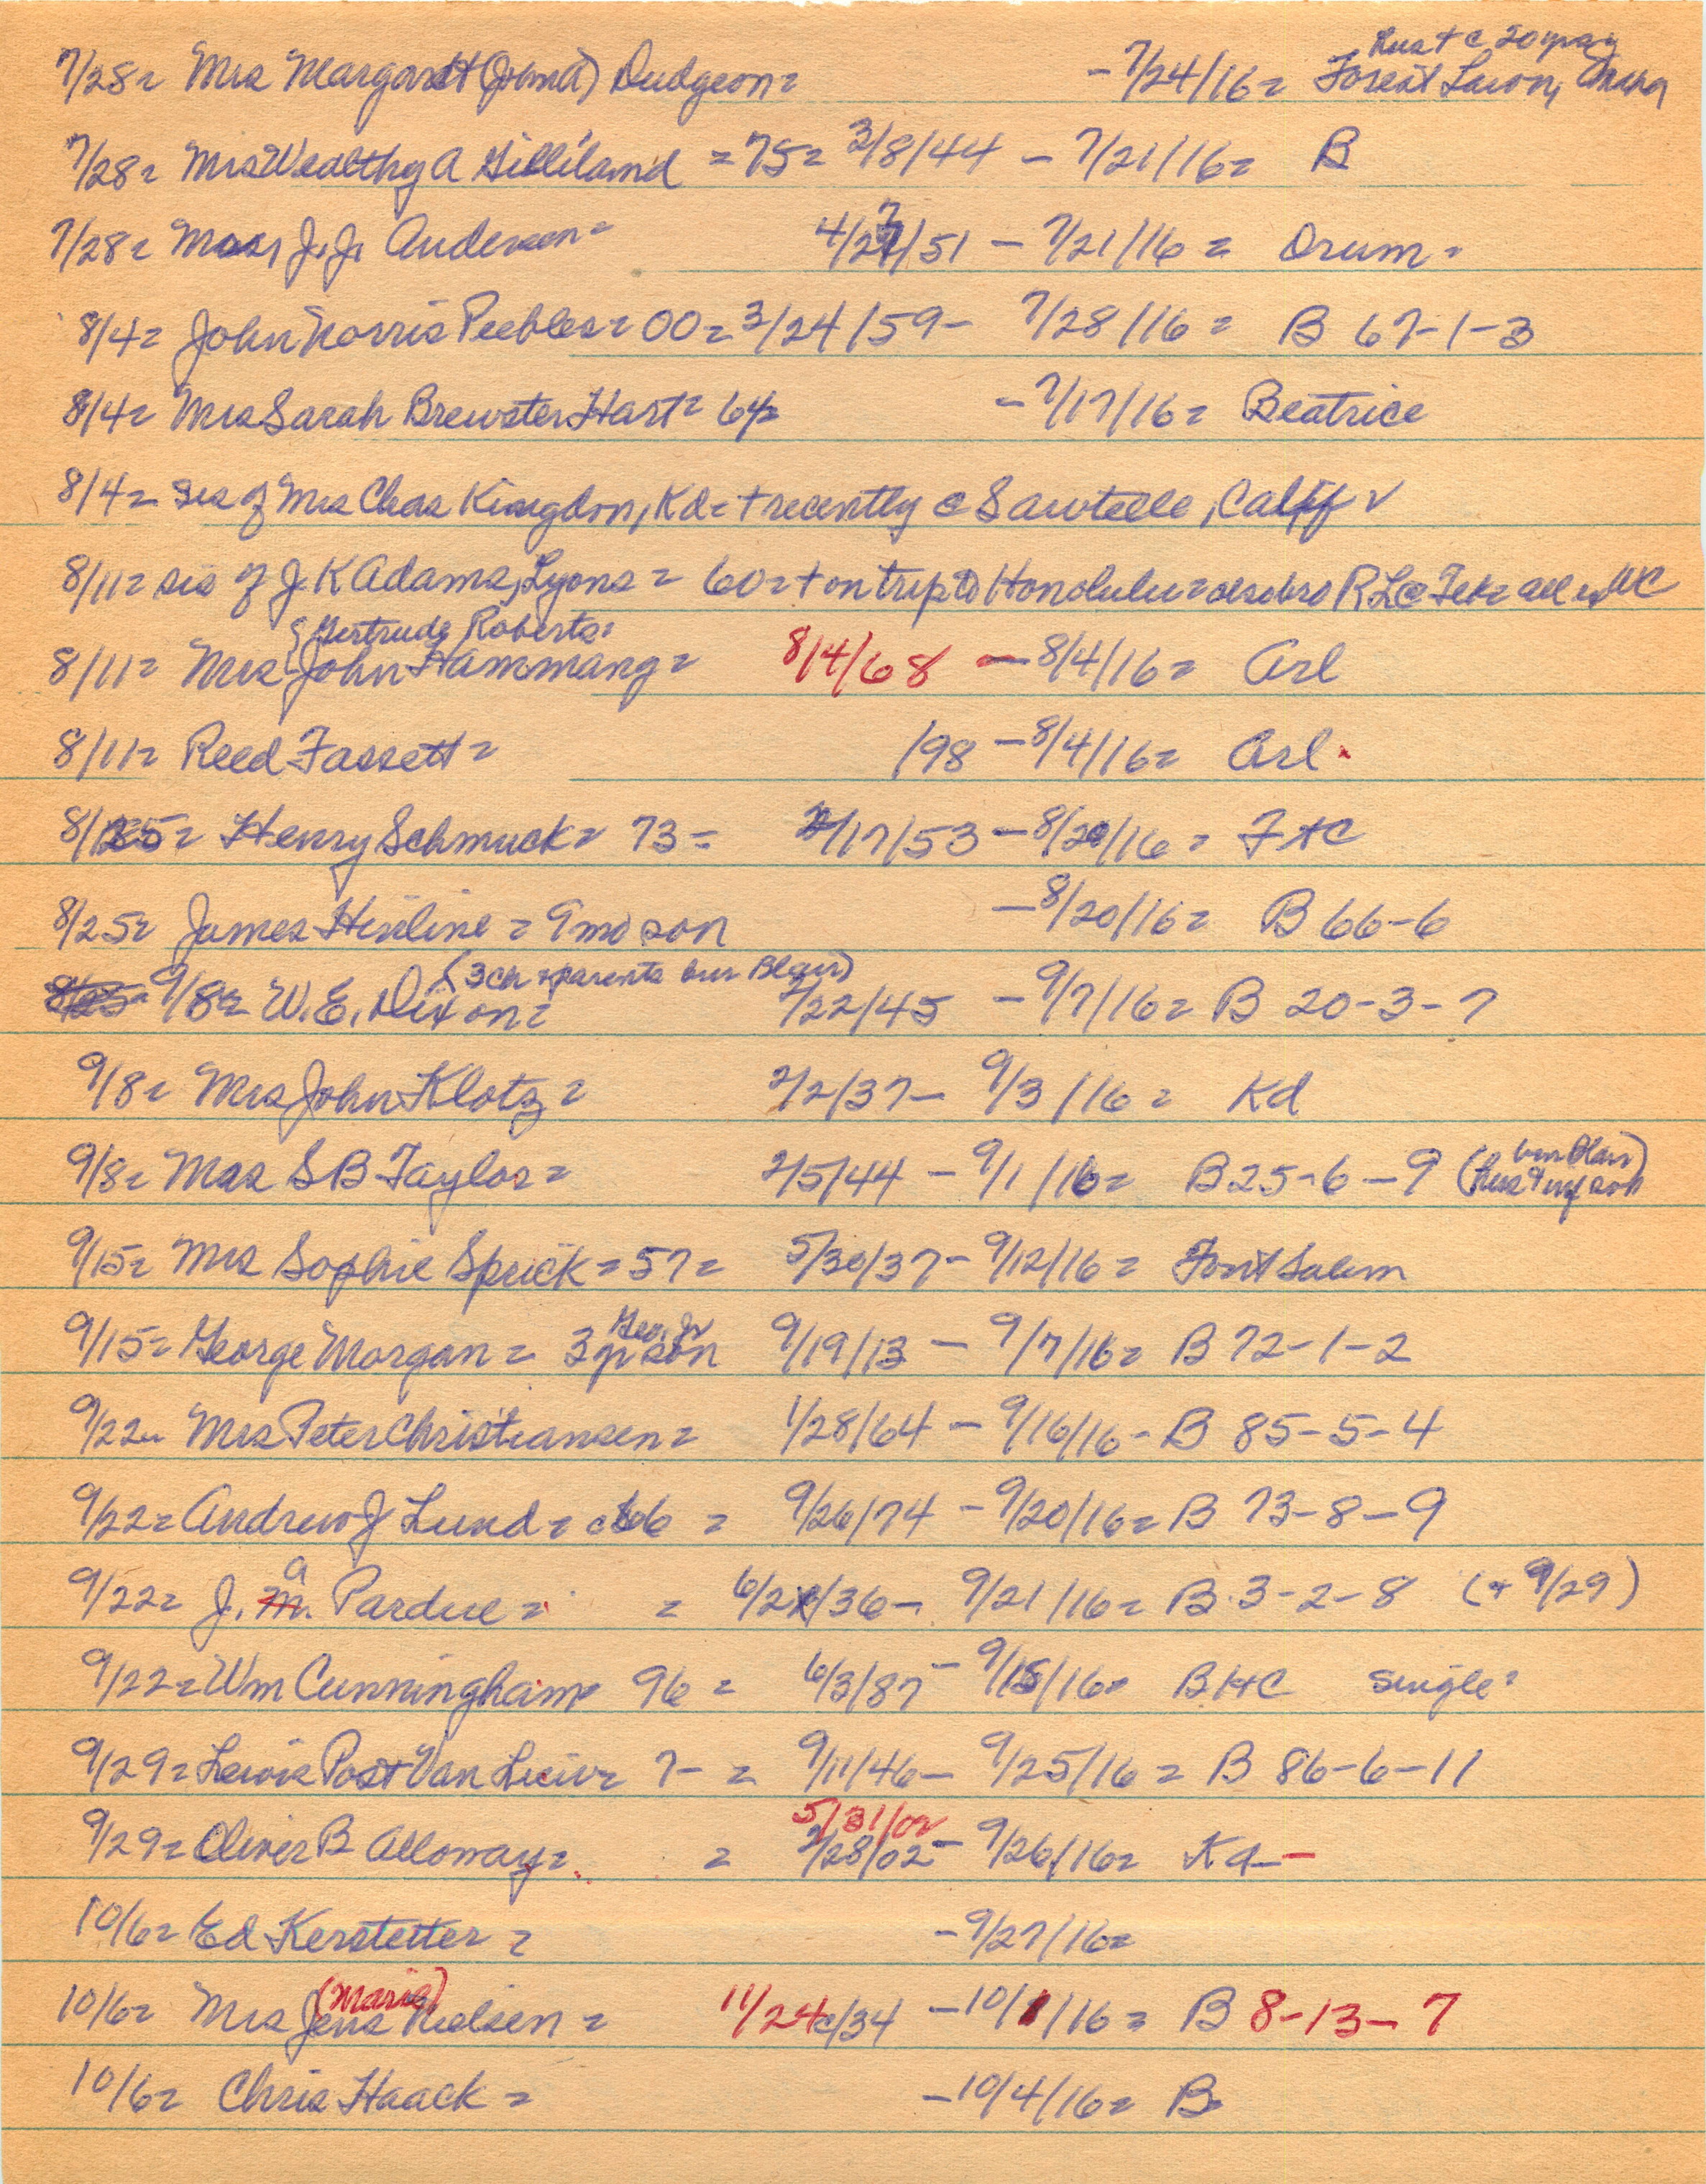 7/28= Mrs Margarett (John A) Dudgeon= - 7/24/16= Forest Lawn, Omaha
Hus + c 20 yrs ag
7/28= Mrs Wealthy A Gilliland = 75= 3/8/44 - 7/21/16= B
7/28= Mrs, J. J. Andersen= 4/27/51 - 7/21/16 = Orum=
8/4= John Norris Peebles= 00= 3/24/59- 7/28/16 = B 67-1-3
8/4= Mrs Sarah Brewster Hart= 64= - 7/17/16= Beatrice
8/4= sis of Mrs Chas Kingdon, Kd= + recently c Sawtelle, Calif ✓
8/11= sis of J K Adams, Lyons = 60= + on trip to Honolulu= also bro R L c Tek= all WC
(Gertrude Roberts=
8/11= Mrs John Hammang= 8/4/68 - 8/4/16= Arl
8/11= Reed Fassett= /98 - 8/4/16= Arl.
8/25= Henry Schmuck= 73= 2/17/53 - 8/20/16= FtC
8/25= James Hinline = 9 mo son - 8/20/16= B 66-6
(3 ch + parents bur Blair)
9/8= W. E. Dixon= 2/22/45 - 9/7/16= B 20-3-7
9/8= Mrs John Klotz= 2/2/37- 9/3/16= Kd
9/8= Mrs S B Taylor= 2/5/44 - 9/1/16= B 25-6-9 (bur Blair)
9/15= Mrs Sophie Sprick= 57= 5/30/37- 9/12/16= Font Salem
Geo. Jr
9/15= George Morgan= 3 yr son 9/19/13 - 9/7/16= B 72-1-2
9/22= Mrs Peter Christiansen= 1/28/64 - 9/16/16- B 85-5-4
9/22= Andrew J Lund= 66 = 9/26/74 - 9/20/16= B 73-8-9
a
9/22= J. M. Pardue= = 6/2/36- 9/21/16= B 3-2-8 (+ 9/29)
9/22= Wm Cunningham= 96 = 6/3/87 - 9/15/16= B HC single=
9/29= Lewis Post Van Luiv= 7- = 9/11/46- 9/25/16= B 86-6-11
5/31/02
9/29= Oliver B Alloway= = 2/28/02- 9/26/16= Kd-
10/6= Ed Kerstetter = - 9/27/16=
(Marie)
10/6= Mrs Jens Nielsen = 11/24/34 - 10/1/16= B 8-13-7
10/6= Chris Haack = - 10/4/16= B